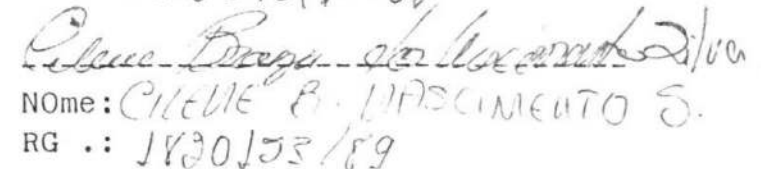 Cilene Braga do Nascimento Silva
NOme: CILENE B. NASCIMENTO S.
RG .: 1820193/89